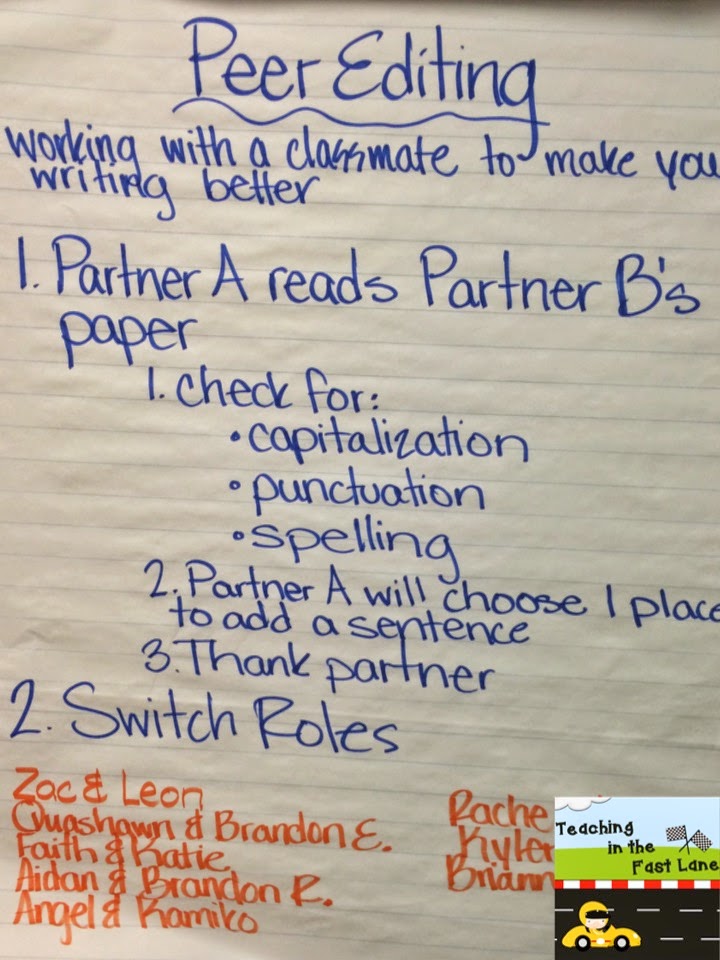 Peer Editing
working with a classmate to make you
writing better
1. Partner A reads Partner B's
paper
1. Check for:
• capitalization
• punctuation
• spelling
2. Partner A will choose 1 place
to add a sentence
3. Thank partner
2. Switch Roles
Zac & Leon
Quashawn & Brandon E.
Faith & Katie
Aidan & Brandon R.
Angel & Kamiko
Rache
Kyler
Briann
Teaching
in the
Fast Lane